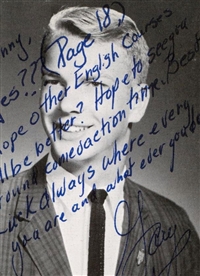 nny,
es?? (Page 187)
ope other English courses
ll be better? Hope to see you
round come action time. Best
Luck always where every
you are and what ever you do
Gary